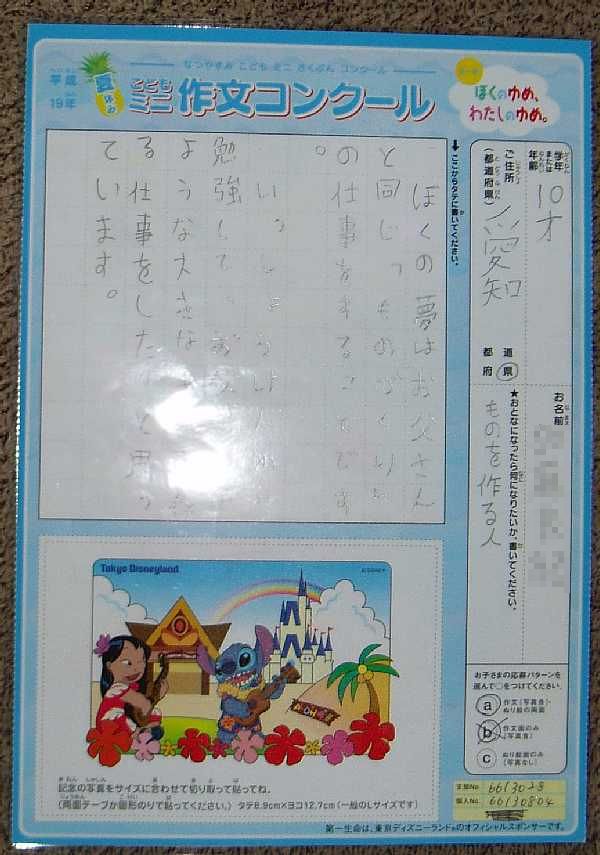 なつやすみ こども ミニ さくぶん コンクール
平成
19年
夏休み
こども
ミニ作文コンクール
ぼくのゆめ、
わたしのゆめ。
学年
または
年齢
10才
ご住所
(都道府県)
愛知
都道
府県
お名前
★おとなになったら何になりたいか、書いてください。
ものを作る人
↓ここからタテに書いてください。
ぼくの夢はお父さん
と同じ、ものづくり
の仕事をすることです
。
いっしょうけん
勉強して、お
ような大きな
る仕事をしたいと思っ
ています。
お子さまの応募パターンを
選んで○をつけてください。
a 作文(写真含)・
ぬり絵の両面
b 作文面のみ
(写真含)
c ぬり絵面のみ
(写真なし)
Tokyo Disneyland
©DISNEY
ALOHA
記念の写真をサイズに合わせて切り取って貼ってね。
(両面テープか固形のりで貼ってください。) タテ8.9cm×ヨコ12.7cm(一般のLサイズです)
支部No. 6613028
個人No. 66130804
第一生命は、東京ディズニーランド®のオフィシャルスポンサーです。